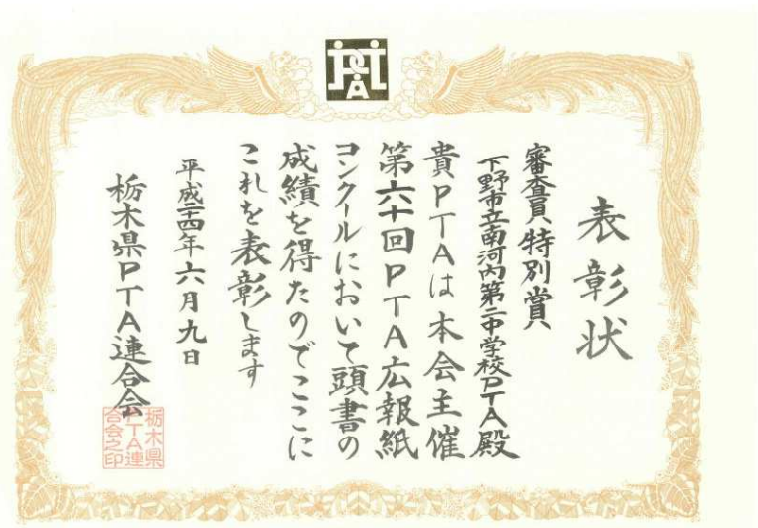 表彰状
審査員特別賞
下野市立南河内第二中学校PTA殿
貴PTAは本会主催
第六十回PTA広報紙
コンクールにおいて頭書の
成績を得たのでここに
これを表彰します
平成二十四年六月九日
栃木県PTA連合会
栃木県
PTA連
合会之印
PTA